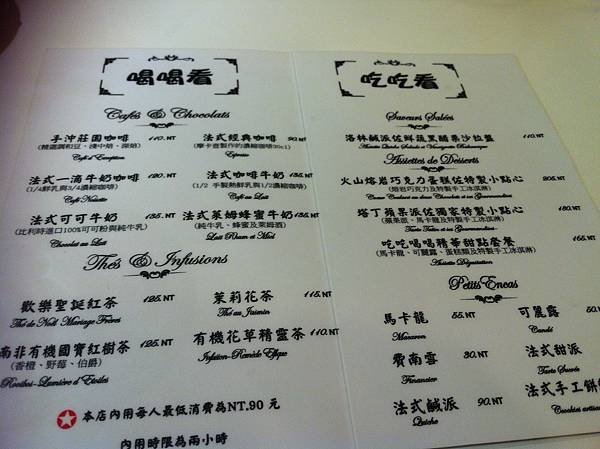 喝喝看
Cafés & Chocolats
手沖莊園咖啡 110.NT
(精選調和豆、淺中焙、深焙)
Café d'Exception
法式經典咖啡 90.NT
(摩卡壺製作的濃縮咖啡80cl)
Espresso
法式一滴牛奶咖啡 120.NT
(1/4鮮乳與3/4濃縮咖啡)
Café Noisette
法式咖啡牛奶 135.NT
(1/2 手製熱鮮乳與1/2濃縮咖啡)
Café au Lait
法式可可牛奶 135.NT
(比利時進口100%可可粉與純牛乳)
Chocolat au Lait
法式萊姆蜂蜜牛奶 135.NT
(純牛乳、蜂蜜及萊姆酒)
Lait Rhum et Miel
Thés & Infusions
歡樂聖誕紅茶 125.NT
Thé de Noël Mariage Frères
茉莉花茶 115.NT
Thé au Jasmin
南非有機國寶紅樹茶 125.NT
(香橙、野莓、伯爵)
Rooibos-Lumière d'Etoiles
有機花草精靈茶 110.NT
本店內用每人最低消費為NT.90 元
內用時限為兩小時
吃吃看
Saveurs Salées
洛林鹹派佐鮮蔬黑醋果沙拉盤 180.NT
Assiettes de Desserts
火山熔岩巧克力蛋糕佐特製小點心 205.NT
(熔岩巧克力及特製手工冰淇淋)
塔丁蘋果派佐獨家特製小點心 185.NT
(蘋果派、馬卡龍及特製手工冰淇淋)
Tarte Tatin et ses Gourmandises
吃吃喝喝精華甜點套餐 165.NT
(馬卡龍、可麗露、蛋糕類及手工冰淇淋)
Assiette Dégustation
Petits Encas
馬卡龍 55.NT
Macaron
可麗露 50.NT
Canelé
費南雪 30.NT
Financier
法式甜派
Tarte Sucrée
法式鹹派 90.NT
Quiche
法式手工餅
Cookies artisan